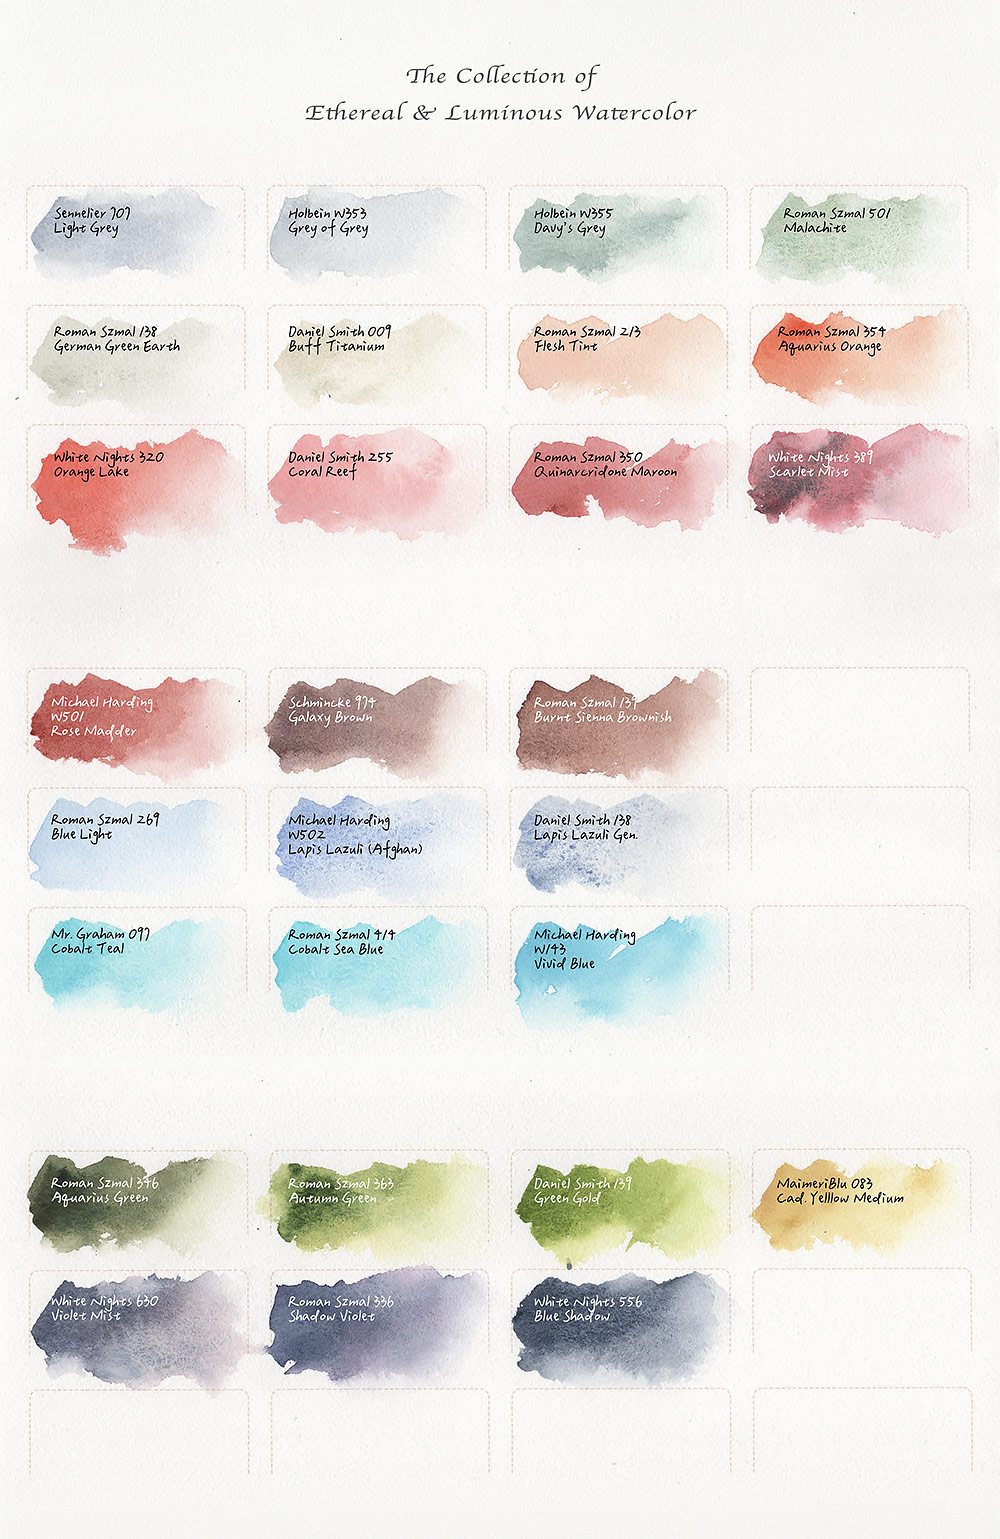 The Collection of
Ethereal & Luminous Watercolor
Sennelier 707
Light Grey
Holbein W353
Grey of Grey
Holbein W355
Davy's Grey
Roman Szmal 501
Malachite
Roman Szmal 138
German Green Earth
Daniel Smith 009
Buff Titanium
Roman Szmal 213
Flesh Tint
Roman Szmal 354
Aquarius Orange
White Nights 320
Orange Lake
Daniel Smith 255
Coral Reef
Roman Szmal 350
Quinarcridone Maroon
White Nights 389
Scarlet Mist
Michael Harding
W501
Rose Madder
Schmincke 974
Galaxy Brown
Roman Szmal 139
Burnt Sienna Brownish
Roman Szmal 269
Blue Light
Michael Harding
W502
Lapis Lazuli (Afghan)
Daniel Smith 138
Lapis Lazuli Gen.
Mr. Graham 097
Cobalt Teal
Roman Szmal 414
Cobalt Sea Blue
Michael Harding
W143
Vivid Blue
Roman Szmal 346
Aquarius Green
Roman Szmal 363
Autumn Green
Daniel Smith 139
Green Gold
MaimeriBlu 083
Cad. Yelllow Medium
White Nights 630
Violet Mist
Roman Szmal 336
Shadow Violet
White Nights 556
Blue Shadow